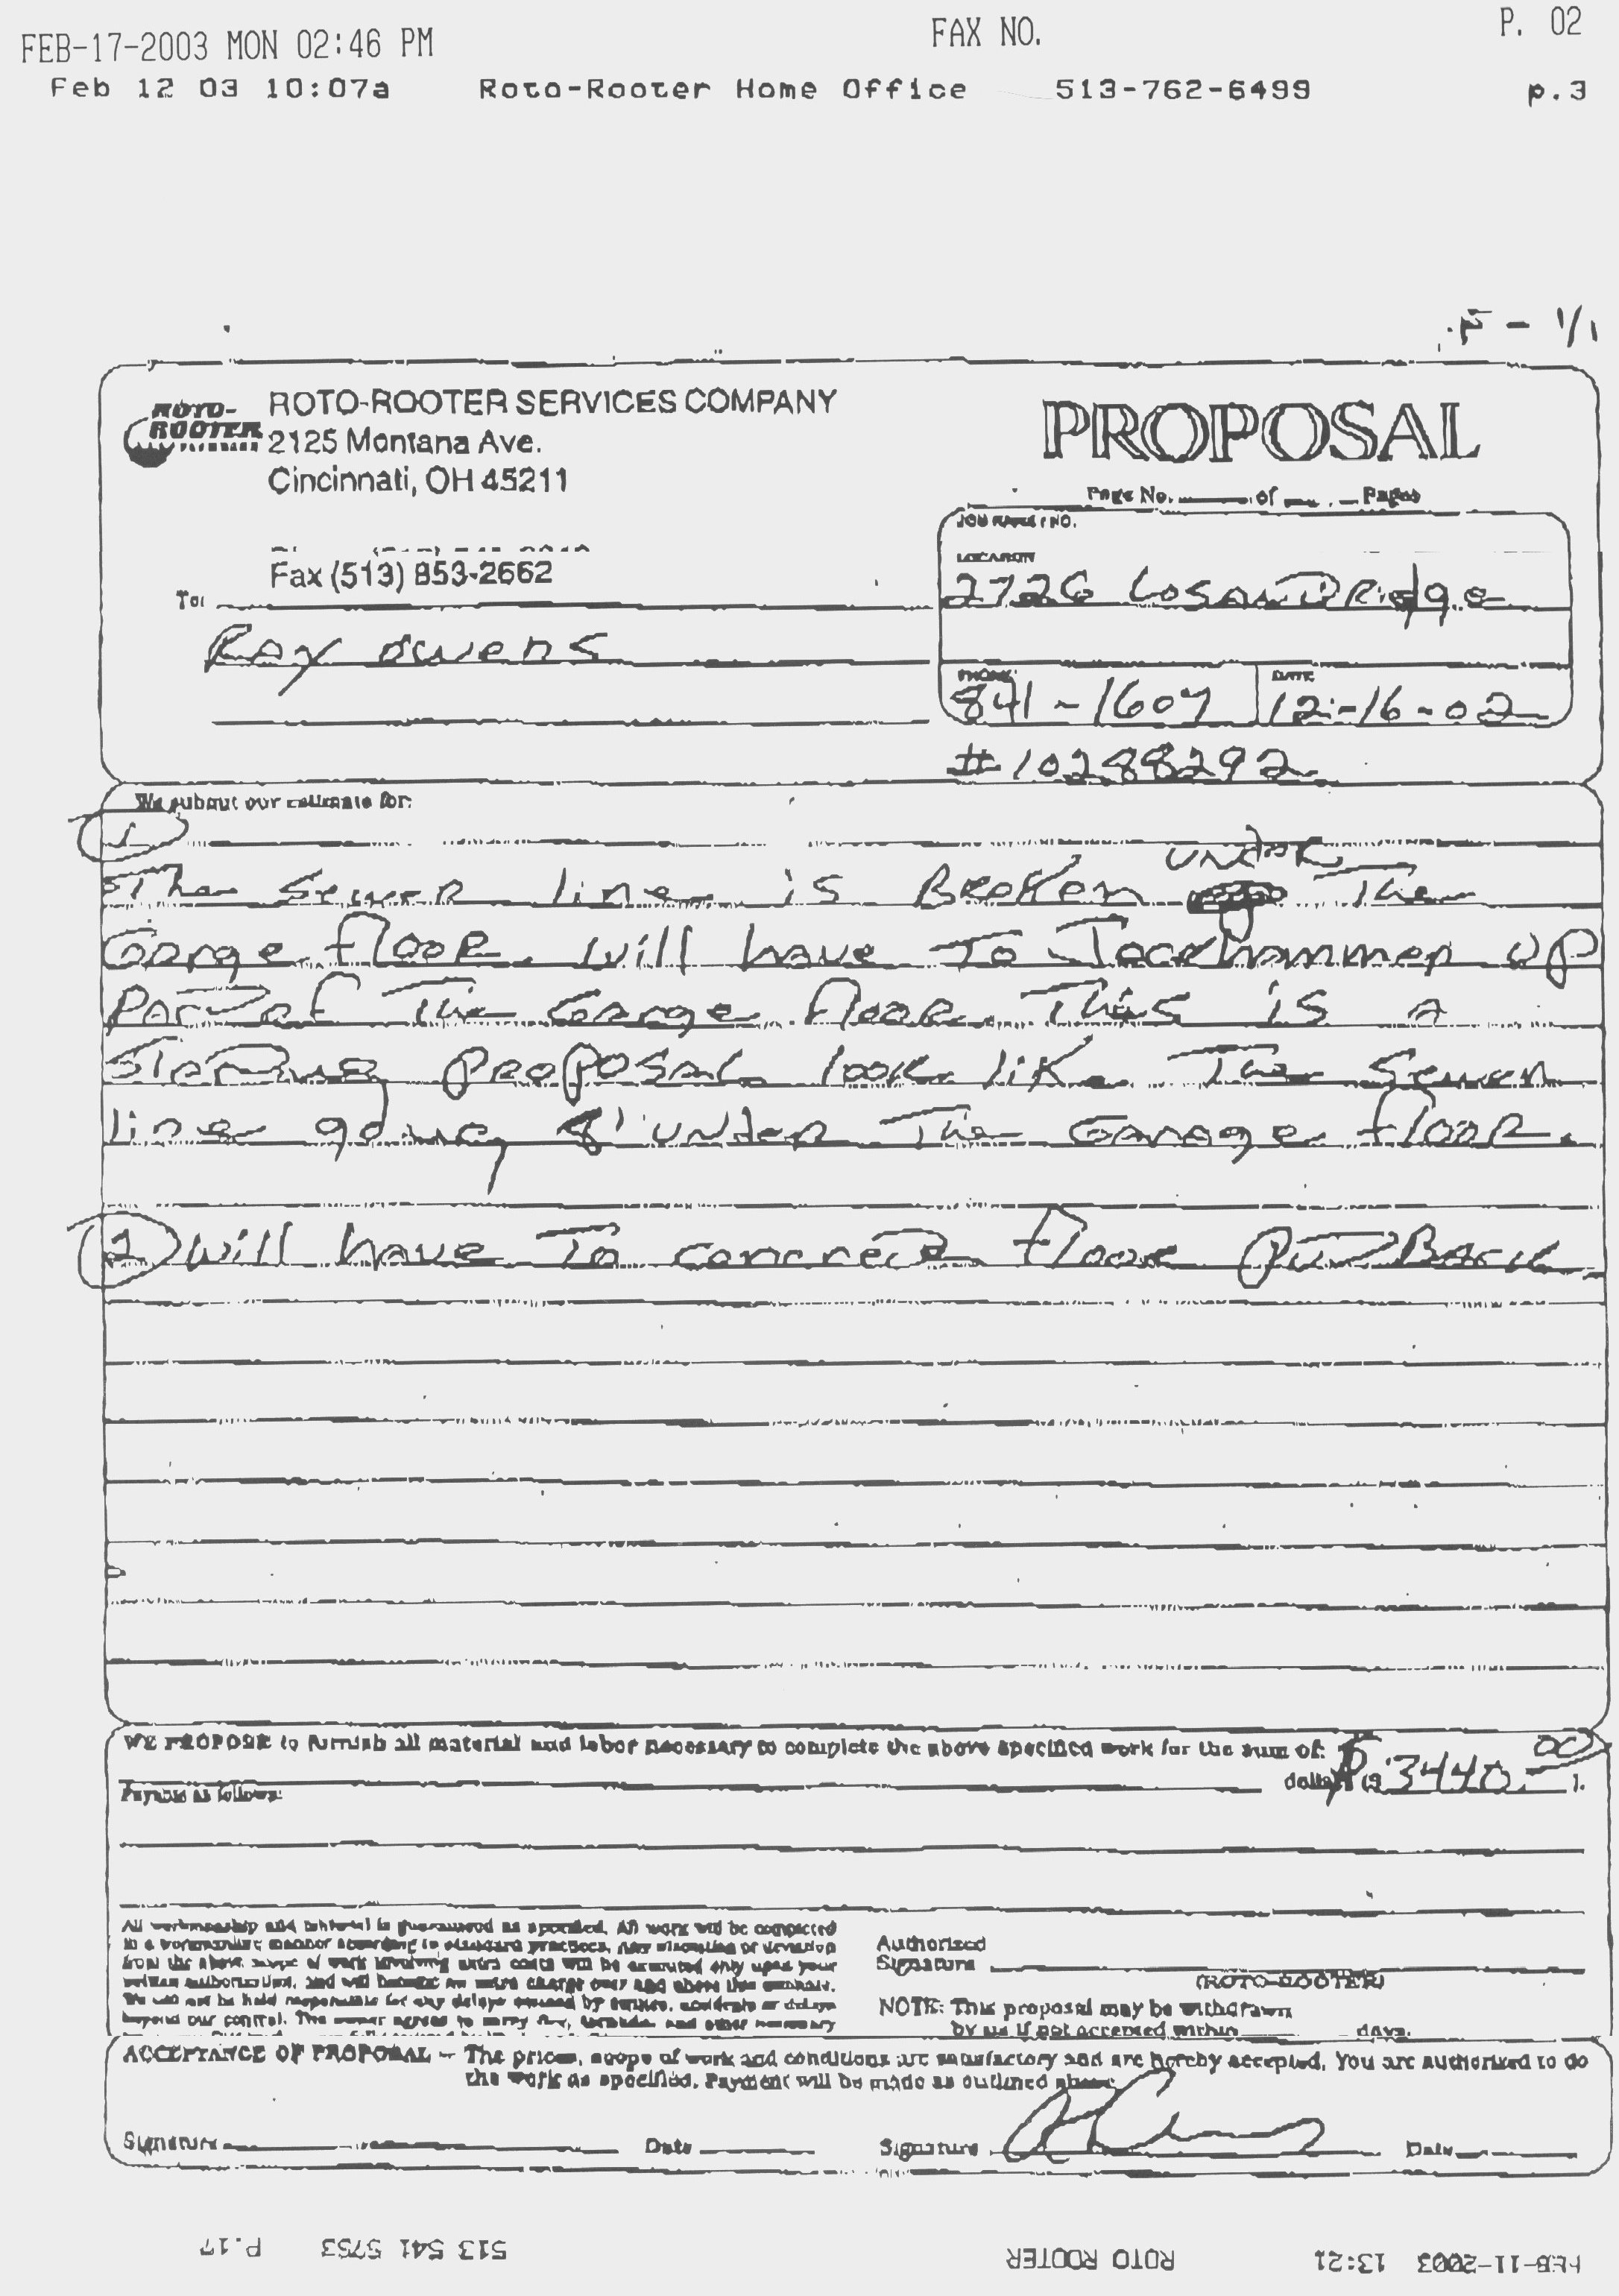 FEB-17-2003 MON 02:46 PM FAX NO. P. 02
Feb 12 03 10:07a Roto-Rooter Home Office 513-762-6499 p.3
ROTO-ROOTER
ROTO-ROOTER SERVICES COMPANY
2125 Montana Ave.
Cincinnati, OH 45211
PROPOSAL
Page No. of Pages
JOB NAME / NO.
Fax (513) 853-2662
LOCATION
2726 LosantiRidge
To:
Ray owens
PHONE
841-1607
DATE
12-16-02
#10288292
We submit our estimate for:
1
The Sewer line is Broken under The
Garge floor. will have To Jackhammer up
Part of The Garge floor. This is a
Proposal look like The Sewer
line going 8' under The Garage floor.
2 Will have To concrete floor Put Back
WE PROPOSE to furnish all material and labor necessary to complete the above specified work for the sum of:
dollars ($ 3440.00 ).
Payable as follows:
All workmanship and material is guaranteed as specified. All work will be completed
in a workmanlike manner according to standard practices. Any alteration or deviation
from the above scope of work involving extra costs will be executed only upon your
written authorization, and will become an extra charge over and above this estimate.
We will not be held responsible for any delays caused by strikes, accidents or delays
beyond our control. The owner agrees to carry fire, tornado and other necessary
Authorized
Signature
(ROTO-ROOTER)
NOTE: This proposal may be withdrawn
by us if not accepted within days.
ACCEPTANCE OF PROPOSAL - The prices, scope of work and conditions are satisfactory and are hereby accepted. You are authorized to do
the work as specified. Payment will be made as outlined above.
Signature Date Signature Date
FEB-11-2003 13:21 ROTO ROOTER 513 541 5753 P.17